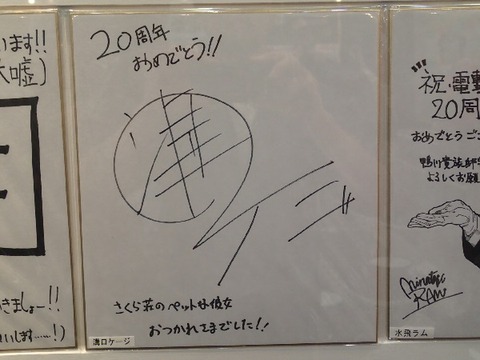 います!!
20周年
おめでとう!!
溝
ケージ
さくら荘のペットな彼女
おつかれさまでした!!
溝口ケージ
きましょー!!
いします……!)
祝・電撃
20周
おめでとうご
鴨川貴族邸宅
よろしくお願
Minatobi
RAM
水飛ラム